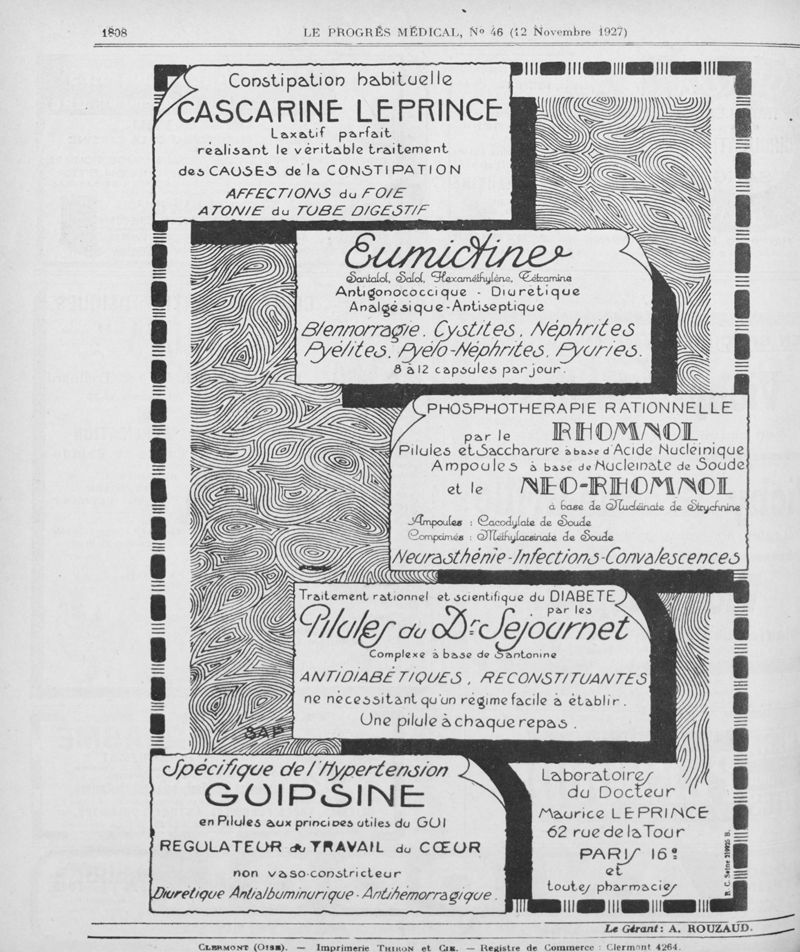 1808
LE PROGRÈS MÉDICAL, No 46 (12 Novembre 1927)
Constipation habituelle
CASCARINE LEPRINCE
Laxatif parfait
réalisant le véritable traitement
des CAUSES de la CONSTIPATION
AFFECTIONS du FOIE
ATONIE du TUBE DIGESTIF
Eumictine
Santalol, Salol, Hexaméthylène, Tétramine
Antigonococcique - Diurétique
Analgésique-Antiseptique
Blennorragie. Cystites. Néphrites
Pyélites. Pyélo-Néphrites. Pyuries.
8 à 12 capsules par jour.
PHOSPHOTHERAPIE RATIONNELLE
par le RHOMNOL
Pilules et Saccharure à base d'Acide Nucléinique
Ampoules à base de Nucleinate de Soude
et le NEO-RHOMNOL
à base de Nucléinate de Strychnine
Ampoules : Cacodylate de Soude
Comprimés : Méthylarsinate de Soude
Neurasthénie-Infections-Convalescences
Traitement rationnel et scientifique du DIABETE
par les
Pilules du Dr Sejournet
Complexe à base de Santonine
ANTIDIABÉTIQUES, RECONSTITUANTES
ne nécessitant qu'un régime facile à établir.
Une pilule à chaque repas.
SAP
Spécifique de l'Hypertension
GUIPSINE
en Pilules aux principes utiles du GUI
REGULATEUR du TRAVAIL du CŒUR
non vaso-constricteur
Diurétique Antialbuminurique-Antihémorragique.
Laboratoires
du Docteur
Maurice LEPRINCE
62 rue de la Tour
PARIS 16e
et
toutes pharmacies
Le Gérant: A. ROUZAUD.
CLERMONT (OISE). — Imprimerie THIRON et CIE. — Registre de Commerce : Clermont 4264.